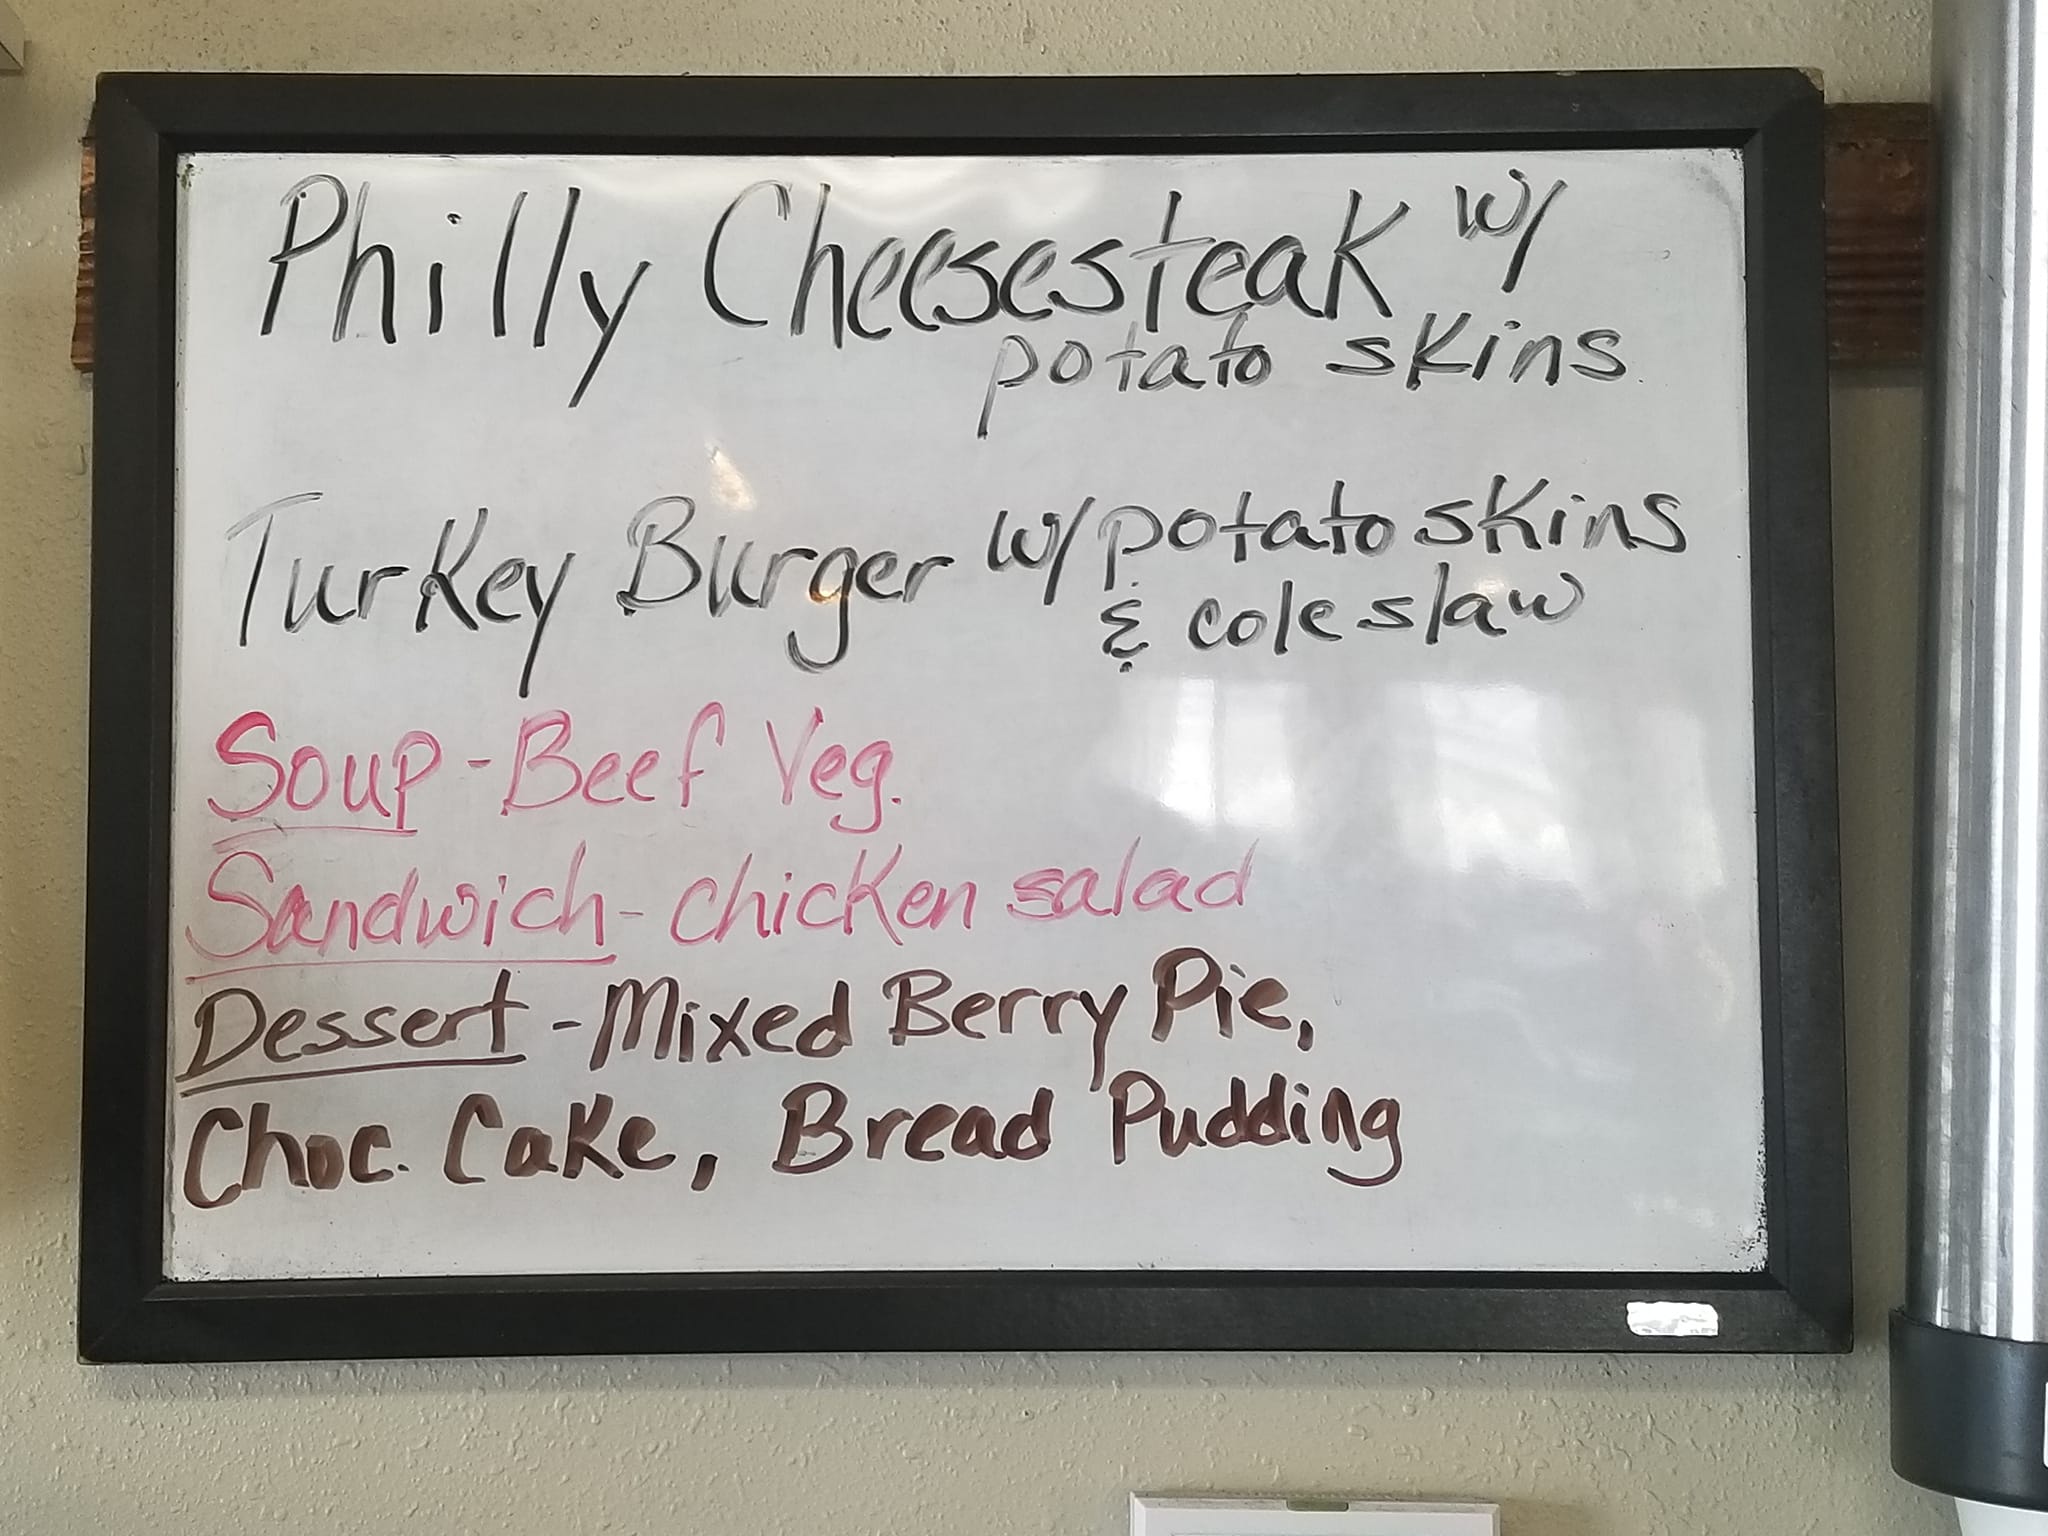 Philly Cheesesteak w/
potato skins
Turkey Burger w/ potato skins
& coleslaw
Soup - Beef Veg.
Sandwich - chicken salad
Dessert - Mixed Berry Pie,
Choc. Cake, Bread Pudding